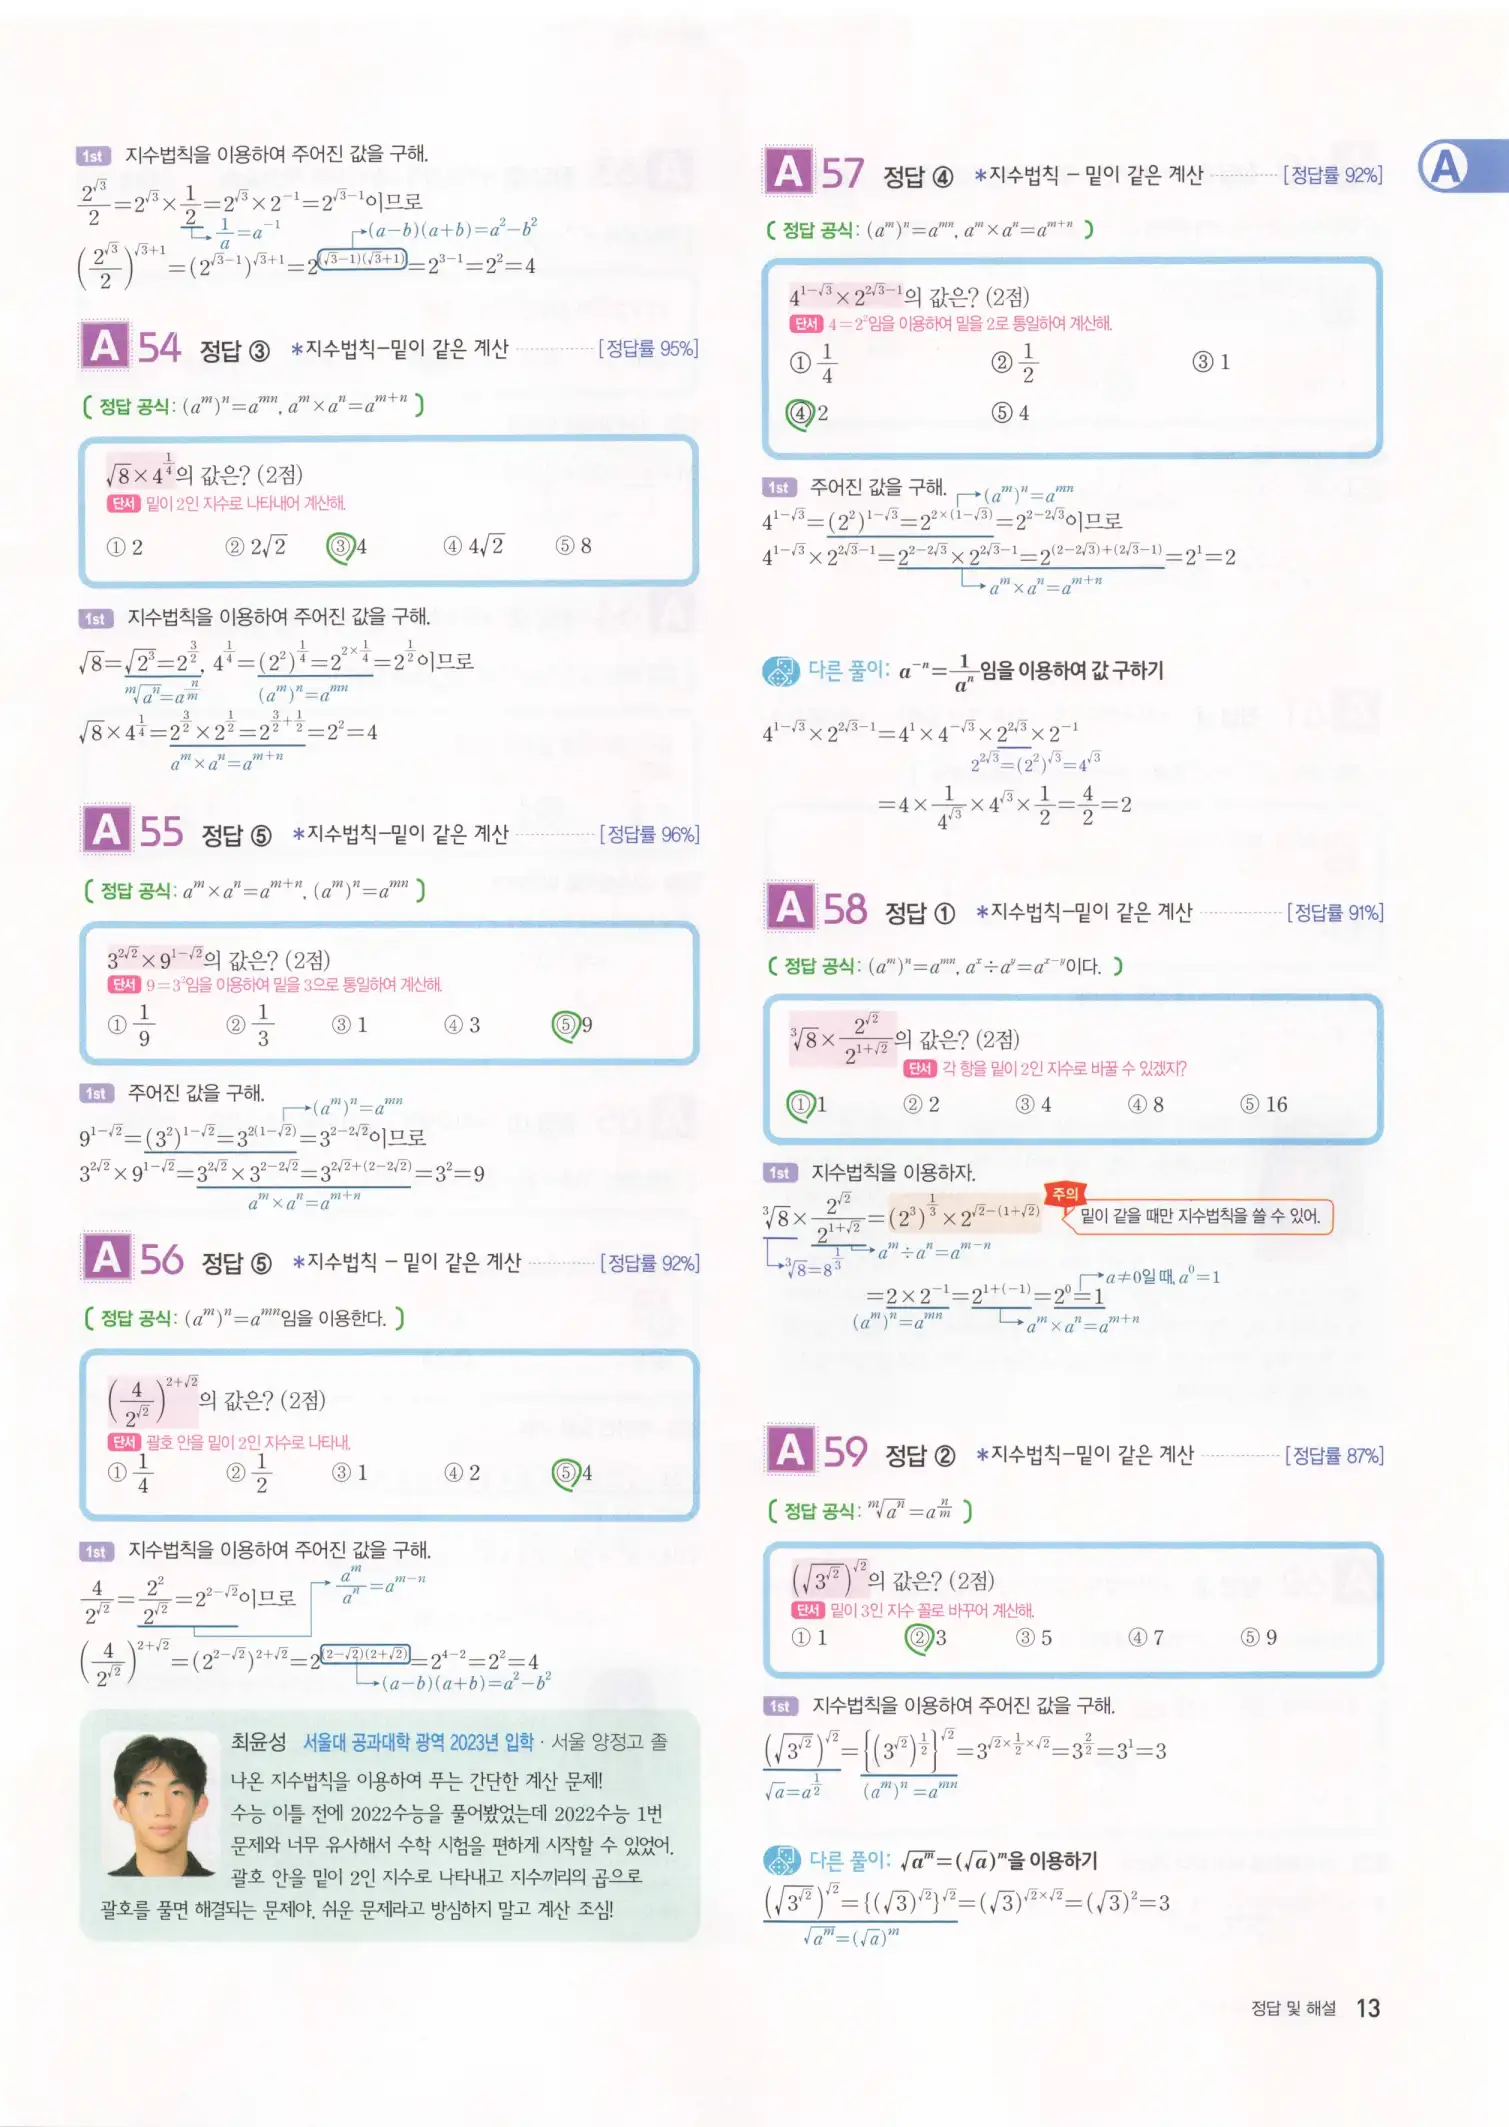 1st 지수법칙을 이용하여 주어진 값을 구해.
2^{√3}/2=2^{√3}×1/2=2^{√3}×2^{-1}=2^{√3-1}이므로
1/a=a^{-1}
(a-b)(a+b)=a²-b²
(2^{√3}/2)^{√3+1}=(2^{√3-1})^{√3+1}=2^{(√3-1)(√3+1)}=2^{3-1}=2²=4
A 54 정답 ③ *지수법칙-밑이 같은 계산 [정답률 95%]
( 정답 공식: (a^m)^n=a^{mn}, a^m×a^n=a^{m+n} )
√8×4^{1/4}의 값은? (2점)
단서 밑이 2인 지수로 나타내어 계산해.
① 2 ② 2√2 ③ 4 ④ 4√2 ⑤ 8
1st 지수법칙을 이용하여 주어진 값을 구해.
√8=√2³=2^{3/2}, 4^{1/4}=(2²)^{1/4}=2^{2×1/4}=2^{1/2}이므로
^m√a^n=a^{n/m} (a^m)^n=a^{mn}
√8×4^{1/4}=2^{3/2}×2^{1/2}=2^{3/2+1/2}=2²=4
a^m×a^n=a^{m+n}
A 55 정답 ⑤ *지수법칙-밑이 같은 계산 [정답률 96%]
( 정답 공식: a^m×a^n=a^{m+n}, (a^m)^n=a^{mn} )
3^{2√2}×9^{1-√2}의 값은? (2점)
단서 9=3²임을 이용하여 밑을 3으로 통일하여 계산해.
① 1/9 ② 1/3 ③ 1 ④ 3 ⑤ 9
1st 주어진 값을 구해.
(a^m)^n=a^{mn}
9^{1-√2}=(3²)^{1-√2}=3^{2(1-√2)}=3^{2-2√2}이므로
3^{2√2}×9^{1-√2}=3^{2√2}×3^{2-2√2}=3^{2√2+(2-2√2)}=3²=9
a^m×a^n=a^{m+n}
A 56 정답 ⑤ *지수법칙 - 밑이 같은 계산 [정답률 92%]
( 정답 공식: (a^m)^n=a^{mn}임을 이용한다. )
(4/2^{√2})^{2+√2}의 값은? (2점)
단서 괄호 안을 밑이 2인 지수로 나타내.
① 1/4 ② 1/2 ③ 1 ④ 2 ⑤ 4
1st 지수법칙을 이용하여 주어진 값을 구해.
4/2^{√2}=2²/2^{√2}=2^{2-√2}이므로
a^m/a^n=a^{m-n}
(4/2^{√2})^{2+√2}=(2^{2-√2})^{2+√2}=2^{(2-√2)(2+√2)}=2^{4-2}=2²=4
(a-b)(a+b)=a²-b²
최윤성 서울대 공과대학 광역 2023년 입학 · 서울 양정고 졸
나온 지수법칙을 이용하여 푸는 간단한 계산 문제!
수능 이틀 전에 2022수능을 풀어봤었는데 2022수능 1번
문제와 너무 유사해서 수학 시험을 편하게 시작할 수 있었어.
괄호 안을 밑이 2인 지수로 나타내고 지수끼리의 곱으로
괄호를 풀면 해결되는 문제야. 쉬운 문제라고 방심하지 말고 계산 조심!
A
A 57 정답 ④ *지수법칙 - 밑이 같은 계산 [정답률 92%]
( 정답 공식: (a^m)^n=a^{mn}, a^m×a^n=a^{m+n} )
4^{1-√3}×2^{2√3-1}의 값은? (2점)
단서 4=2²임을 이용하여 밑을 2로 통일하여 계산해.
① 1/4 ② 1/2 ③ 1
④ 2 ⑤ 4
1st 주어진 값을 구해.
(a^m)^n=a^{mn}
4^{1-√3}=(2²)^{1-√3}=2^{2×(1-√3)}=2^{2-2√3}이므로
4^{1-√3}×2^{2√3-1}=2^{2-2√3}×2^{2√3-1}=2^{(2-2√3)+(2√3-1)}=2¹=2
a^m×a^n=a^{m+n}
다른 풀이: a^{-n}=1/a^n임을 이용하여 값 구하기
4^{1-√3}×2^{2√3-1}=4¹×4^{-√3}×2^{2√3}×2^{-1}
2^{2√3}=(2²)^{√3}=4^{√3}
=4×1/4^{√3}×4^{√3}×1/2=4/2=2
A 58 정답 ① *지수법칙-밑이 같은 계산 [정답률 91%]
( 정답 공식: (a^m)^n=a^{mn}, a^x÷a^y=a^{x-y}이다. )
³√8×2^{√2}/2^{1+√2}의 값은? (2점)
단서 각 항을 밑이 2인 지수로 바꿀 수 있겠지?
① 1 ② 2 ③ 4 ④ 8 ⑤ 16
1st 지수법칙을 이용하자.
³√8×2^{√2}/2^{1+√2}=(2³)^{1/3}×2^{√2-(1+√2)}
주의 밑이 같을 때만 지수법칙을 쓸 수 있어.
a^m÷a^n=a^{m-n}
³√8=8^{1/3}
a≠0일 때, a⁰=1
=2×2^{-1}=2^{1+(-1)}=2⁰=1
(a^m)^n=a^{mn} a^m×a^n=a^{m+n}
A 59 정답 ② *지수법칙-밑이 같은 계산 [정답률 87%]
( 정답 공식: ^m√a^n=a^{n/m} )
(√3^{√2})^{√2}의 값은? (2점)
단서 밑이 3인 지수 꼴로 바꾸어 계산해.
① 1 ② 3 ③ 5 ④ 7 ⑤ 9
1st 지수법칙을 이용하여 주어진 값을 구해.
(√3^{√2})^{√2}={(3^{√2})^{1/2}}^{√2}=3^{√2×1/2×√2}=3^{2/2}=3¹=3
√a=a^{1/2} (a^m)^n=a^{mn}
다른 풀이: √a^m=(√a)^m을 이용하기
(√3^{√2})^{√2}={(√3)^{√2}}^{√2}=(√3)^{√2×√2}=(√3)²=3
√a^m=(√a)^m
정답 및 해설 13